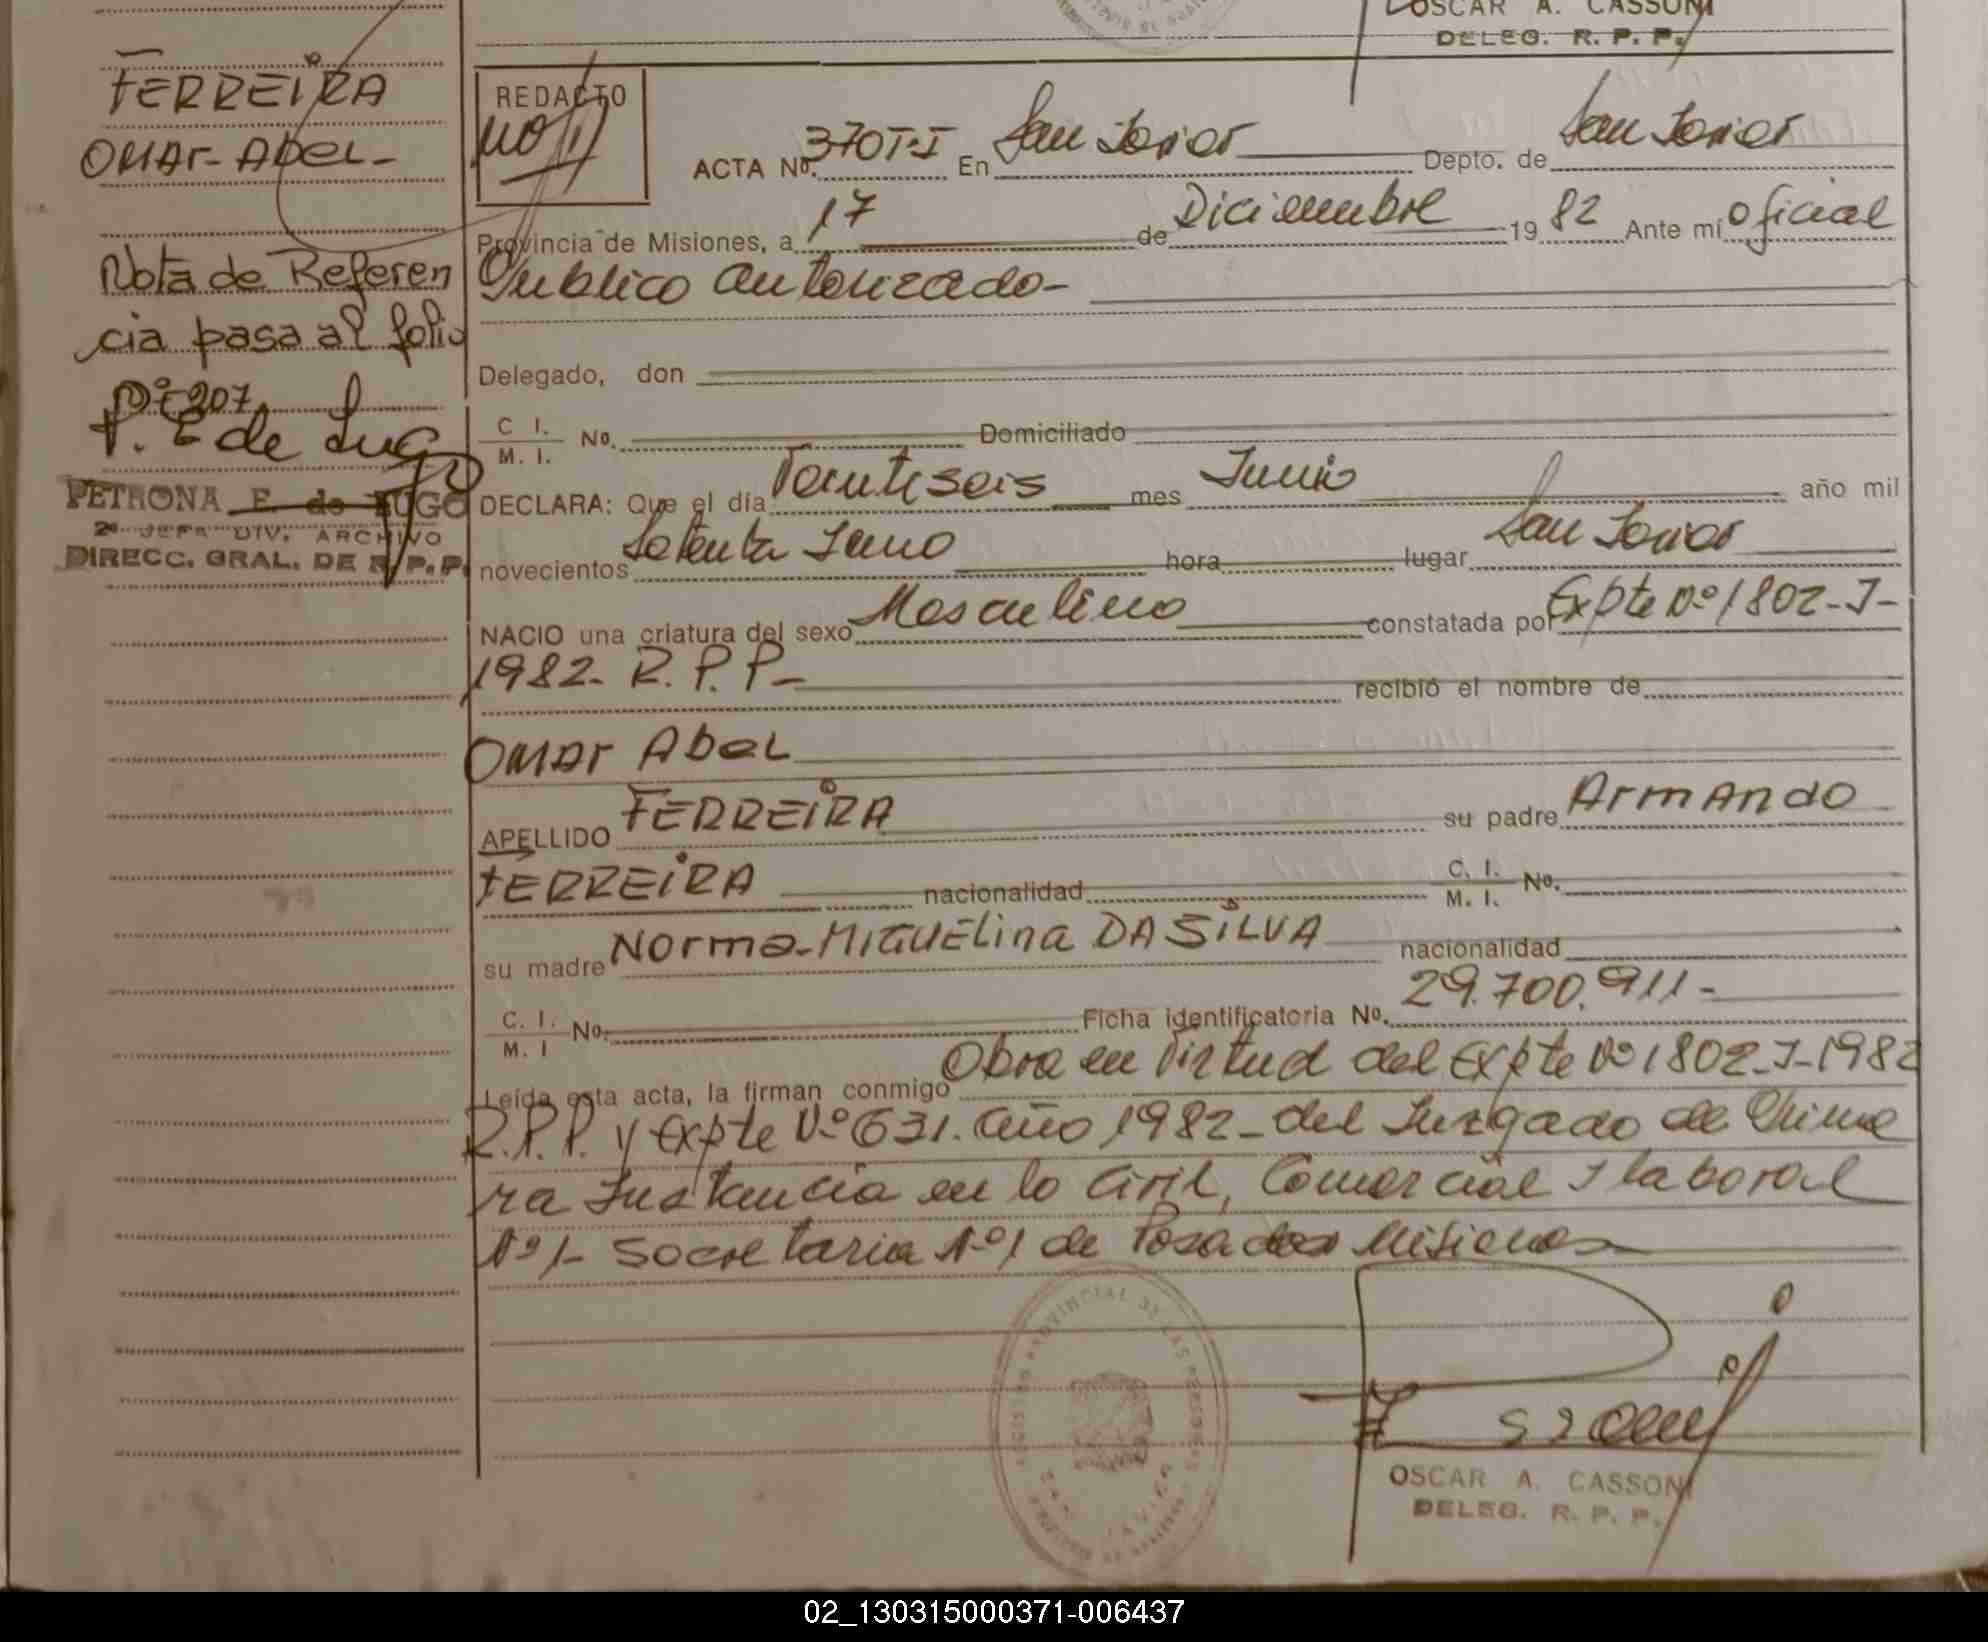 OSCAR A. CASSONI
DELEG. R. P. P.
FERREIRA
OMAr - Abel -
Nota de Referen
cia pasa al folio
Nº 207
P. E de Lugo
PETRONA E. de LUGO
2ª JEFA DIV. ARCHIVO
DIRECC. GRAL. DE R. P. P.
REDACTO
ACTA Nº. 370 T-I En San Javier Depto. de San Javier
Provincia de Misiones, a 17 de Diciembre 19 82 Ante mi Oficial
Publico autorizado-
Delegado, don
C I. / M. I. No. Domiciliado
DECLARA: Que el día Veintiseis mes Junio año mil
novecientos Setenta Iuno hora lugar San Javier
NACIO una criatura del sexo Masculino constatada por Expte Nº 1802-I-
1982- R. P. P- recibió el nombre de
OMAr Abel
APELLIDO FERREIRA su padre ArmAndo
FERREIRA nacionalidad C. I. / M. I. No.
su madre Norma-MIGUElina DA SILVA nacionalidad
C. I. / M. I No. Ficha identificatoria No. 29.700.911-
Leída esta acta, la firman conmigo Obra en Virtud del Expte Nº 1802-I-1982
R.P.P. y Expte Nº 631. año 1982- del Juzgado de Prime
ra Instancia en lo Civil, Comercial I laboral
Nº 1- Secretaria Nº 1 de Posadas Misiones
SAN JAVIER
OSCAR A. CASSONI
DELEG. R. P. P.
02_130315000371-006437